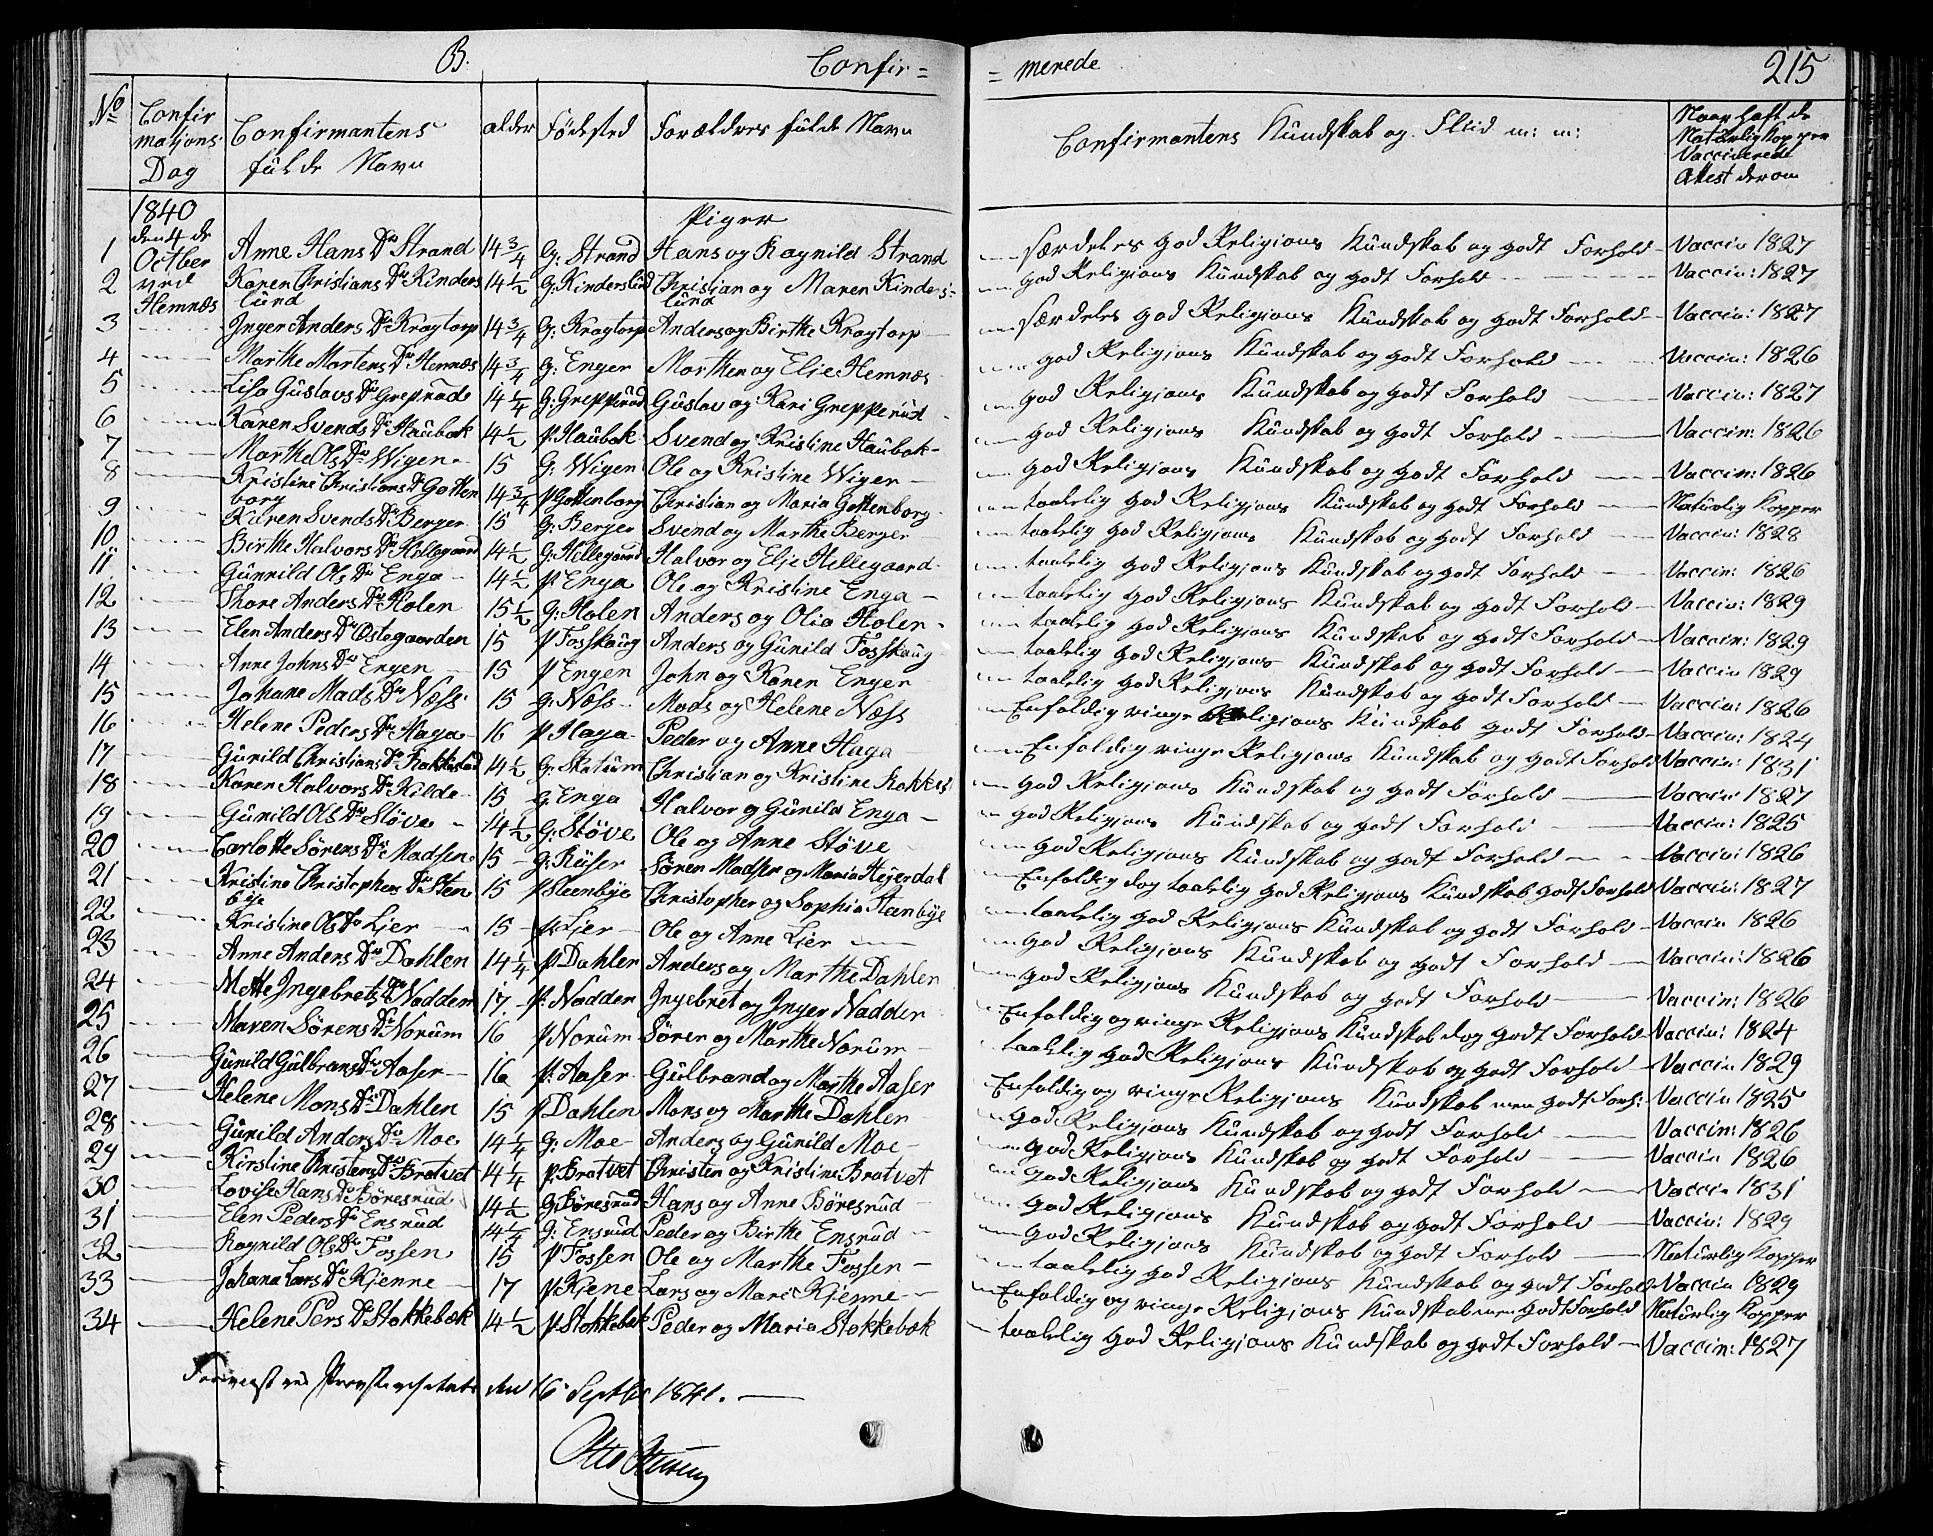 B. Confir= =merede 215
No Confirmations Dag Confirmantens fulde Navn alder Födested Forældres fulde Navn Confirmantens Kundskab og Fliid m: m: Naar haft de Naturlig Kopper Vaccinerede Attest derom
1840 den 4de Octber ved Hemnæs
Piger
1 Anne Hans Dr Strand 14 3/4 G: Strand Hans og Ragnild Strand særdeles god Religions Kundskab og godt Forhold Vaccin 1827
2 Karen Christians Dr Kinderslund 14 1/2 G: Kinderslund Christian og Maren Kinderslund god Religions Kundskab og godt Forhold Vaccin: 1827
3 Inger Anders Dr Krogtorp 14 3/4 G: Krogtorp Anders og Birthe Krogtorp særdeles god Religions Kundskab og godt Forhold Vaccin: 1827
4 Marthe Mortens Dr Hemnæs 14 3/4 G: Enger Morthen og Elie Hemnæs god Religions Kundskab og godt Forhold Vaccin: 1826
5 Lisa Gustavs Dr Greprude 14 1/4 G: Grepperud Gustav og Kari Grepperud god Religions Kundskab og godt Forhold Vaccin: 1827
6 Karen Svends Dr Haubak 14 1/2 P. Haubak Svend og Kristine Haubak god Religions Kundskab og godt Forhold Vaccin: 1826
7 Marthe Ols Dr Wigen 15 G: Wigen Ole og Kristine Wigen god Religions Kundskab og godt Forhold Vaccin: 1826
8 Kristine Christians Dr Gottenborg 14 3/4 P Gottenborg Christian og Maria Gottenborg taalelig god Religions Kundskab og godt Forhold Naturlig Kopper
9 Karen Svends Dr Berger 15 G: Berger Svend og Marthe Berger taalelig god Religions Kundskab og godt Forhold Vaccin: 1828
10 Birthe Halvors Dr Hellegaard 14 1/2 G. Hellegaard Halvor og Elje Hellegaard taalelig god Religions Kundskab og godt Forhold Vaccin: 1826
11 Gunnild Ols Dr Enga 14 1/2 P. Enga Ole og Kristine Enga taalelig god Religions Kundskab og godt Forhold Vaccin: 1829
12 Thore Anders Dr Holen 15 1/2 G: Holen Anders og Olia Holen taalelig god Religions Kundskab og godt Forhold Vaccin: 1829
13 Elen Anders Dr Östegaarden 15 P Fosskaug Anders og Gunild Fosskaug taalelig god Religions Kundskab og godt Forhold Vaccin 1829
14 Anne Johns Dr Engen 15 P Engen John og Karen Engen taalelig god Religions Kundskab og godt Forhold Vaccin: 1826
15 Johane Mads Dr Næss 15 G: Næss Mads og Helene Næss Enfoldig ringe Religions Kundskab godt Forhold Vaccin: 1824
16 Helene Peders Dr Haga 16 P Haga Peder og Anne Haga Enfoldig ringe Religions Kundskab og godt Forhold Vaccin: 1831
17 Gunild Christians Dr Rakkestad 14 1/2 G: Skotum Christian og Kristine Rakkes god Religions Kundskab og godt Forhold Vaccin: 1827
18 Karen Halvors Dr Kilde 15 G. Enga Halvor og Gunild Enga god Religions Kundskab og godt Forhold Vaccin: 1825
19 Gunild Ols Dr Stöve 14 1/2 G: Stöve Ole og Anne Stöve god Religions Kundskab og godt Forhold Vaccin: 1826
20 Carlotte Sörens Dr Madsen 15 G: Ruser Sören Madsen og Maria Hejerdal Enfoldig dog taalelig god Religions Kundskab godt Forhold Vaccin: 1827
21 Kristine Christophers Dr Stenbye 15 P Steenbye Christopher og Sophia Steenbye taalelig god Religions Kundskab og godt Forhold Vaccin 1826
22 Kristine Ols Dr Lier 15 P. Lier Ole og Anne Lier god Religions Kundskab og godt Forhold Vaccin: 1826
23 Anne Anders Dr Dahlen 14 1/4 P Dahlen Anders og Marthe Dahlen god Religions Kundskab og godt Forhold Vaccin: 1826
24 Mette Ingebrets Dr Nadden 17 P: Nadder Ingebret og Inger Nadder Enfoldig og ringe Religions Kundskab dog godt Forhold Vaccin: 1824
25 Maren Sörens Dr Norum 16 P Norum Sören og Marthe Norum taalelig god Religions Kundskab og godt Forhold Vaccin 1829
26 Gunild Gulbrans Dr Aaser 16 P: Aaser Gulbrand og Marthe Aaser Enfoldig og ringe Religions Kundskab men godt Forh: Vaccin 1825
27 Helene Mons Dr Dahlen 15 P Dahlen Mons og Marthe Dahlen god Religions Kundskab og godt Forhold Vaccin: 1826
28 Gunild Anders Dr Moe 14 1/4 G: Moe Anders og Gunild Moe god Religions Kundskab og godt Forhold Vaccin 1826
29 Kirstine Christens Dr Bratvet 14 1/4 P. Bratvet Christen og Kristine Bratvet god Religions Kundskab og godt Forhold Vaccin 1831
30 Lovise Hans Dr Böresrud 14 1/2 G Böresrud Hans og Anne Böresrud god Religions Kundskab og godt Forhold Vaccin: 1829
31 Elen Peders Dr Ensrud 14 1/4 G: Ensrud Peder og Birthe Ensrud god Religions Kundskab og godt Forhold Naturlig Kopper
32 Ragnild Ols Dr Fossen 15 P Fossen Ole og Marthe Fossen taalelig god Religions Kundskab og godt Forhold Vaccin 1829
33 Johana Lars Dr Kjenne 17 P Kjene Lars og Mari Kjenne Enfoldig og ringe Religions Kundskab men godt Forhold Naturlig Kopper
34 Helene Pers Dr Stokkebæk 14 1/2 P. Stokkebæk Peder og Maria Stokkebæk taalelig god Religions Kundskab og godt Forhold Vaccin: 1827
Foreviist ved den 16 Septbr 1841.
Otto